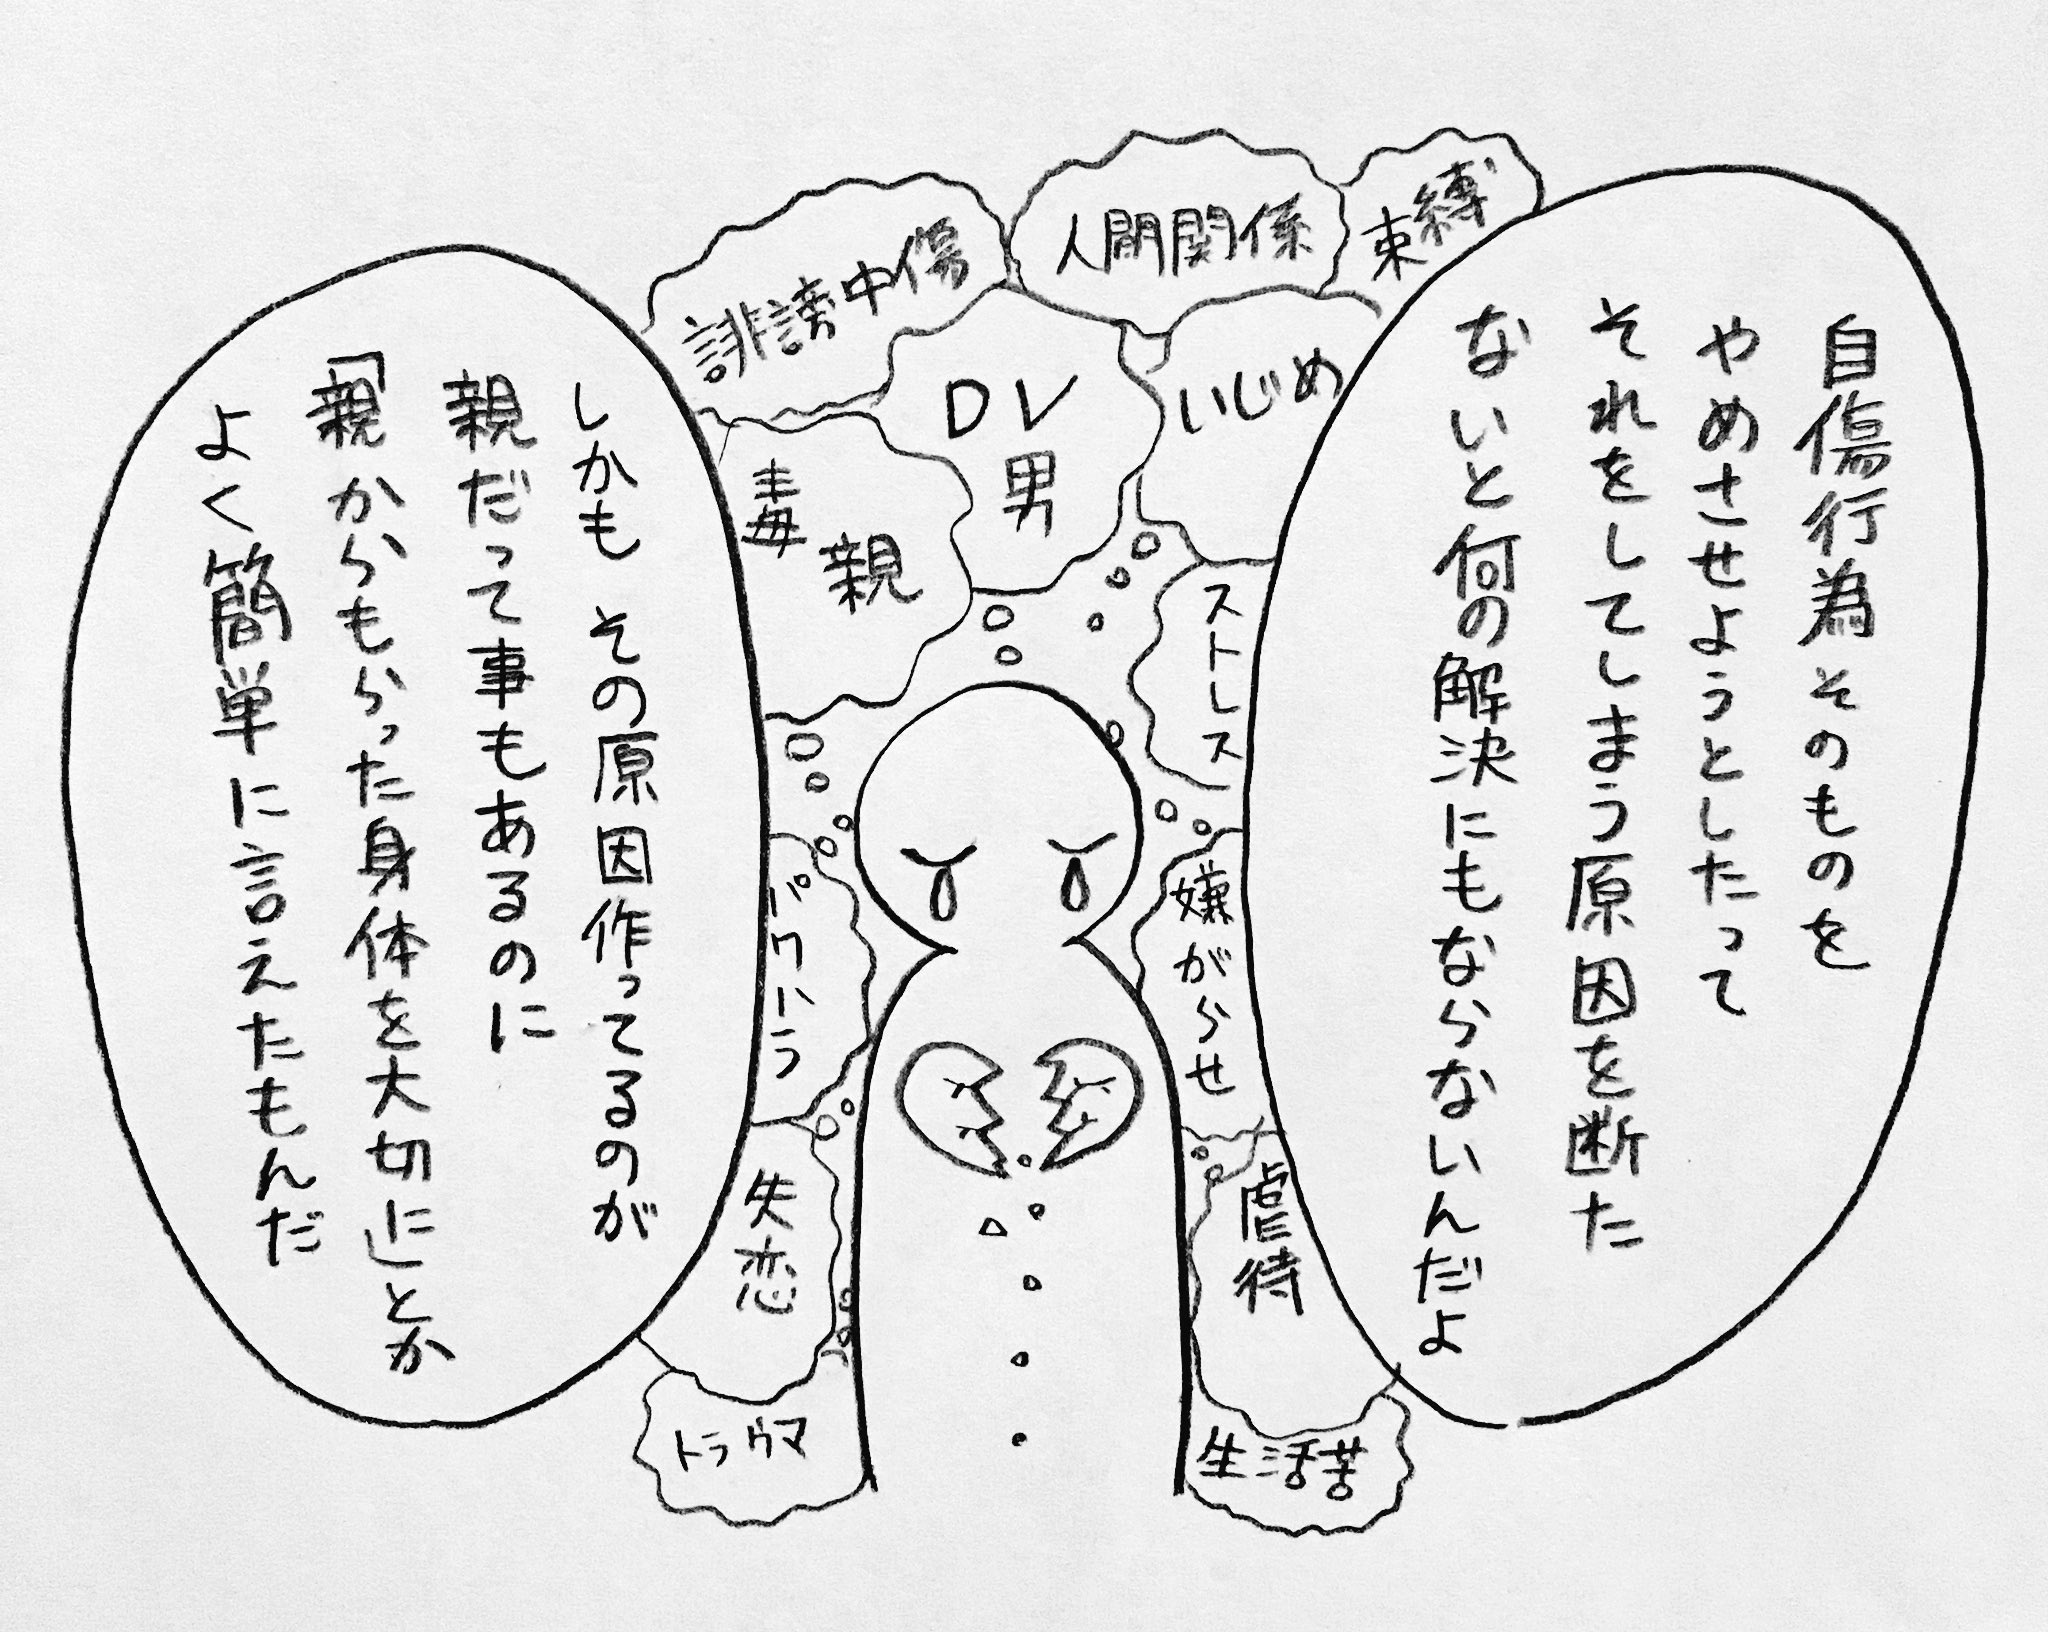 自傷行為そのものを
やめさせようとしたって
それをしてしまう原因を断た
ないと何の解決にもならないんだよ
束縛
人間関係
誹謗中傷
いじめ
DV
男
毒親
ストレス
嫌がらせ
パワハラ
虐待
失恋
生活苦
トラウマ
しかも その原因作ってるのが
親だって事もあるのに
「親からもらった身体を大切に」とか
よく簡単に言えたもんだ